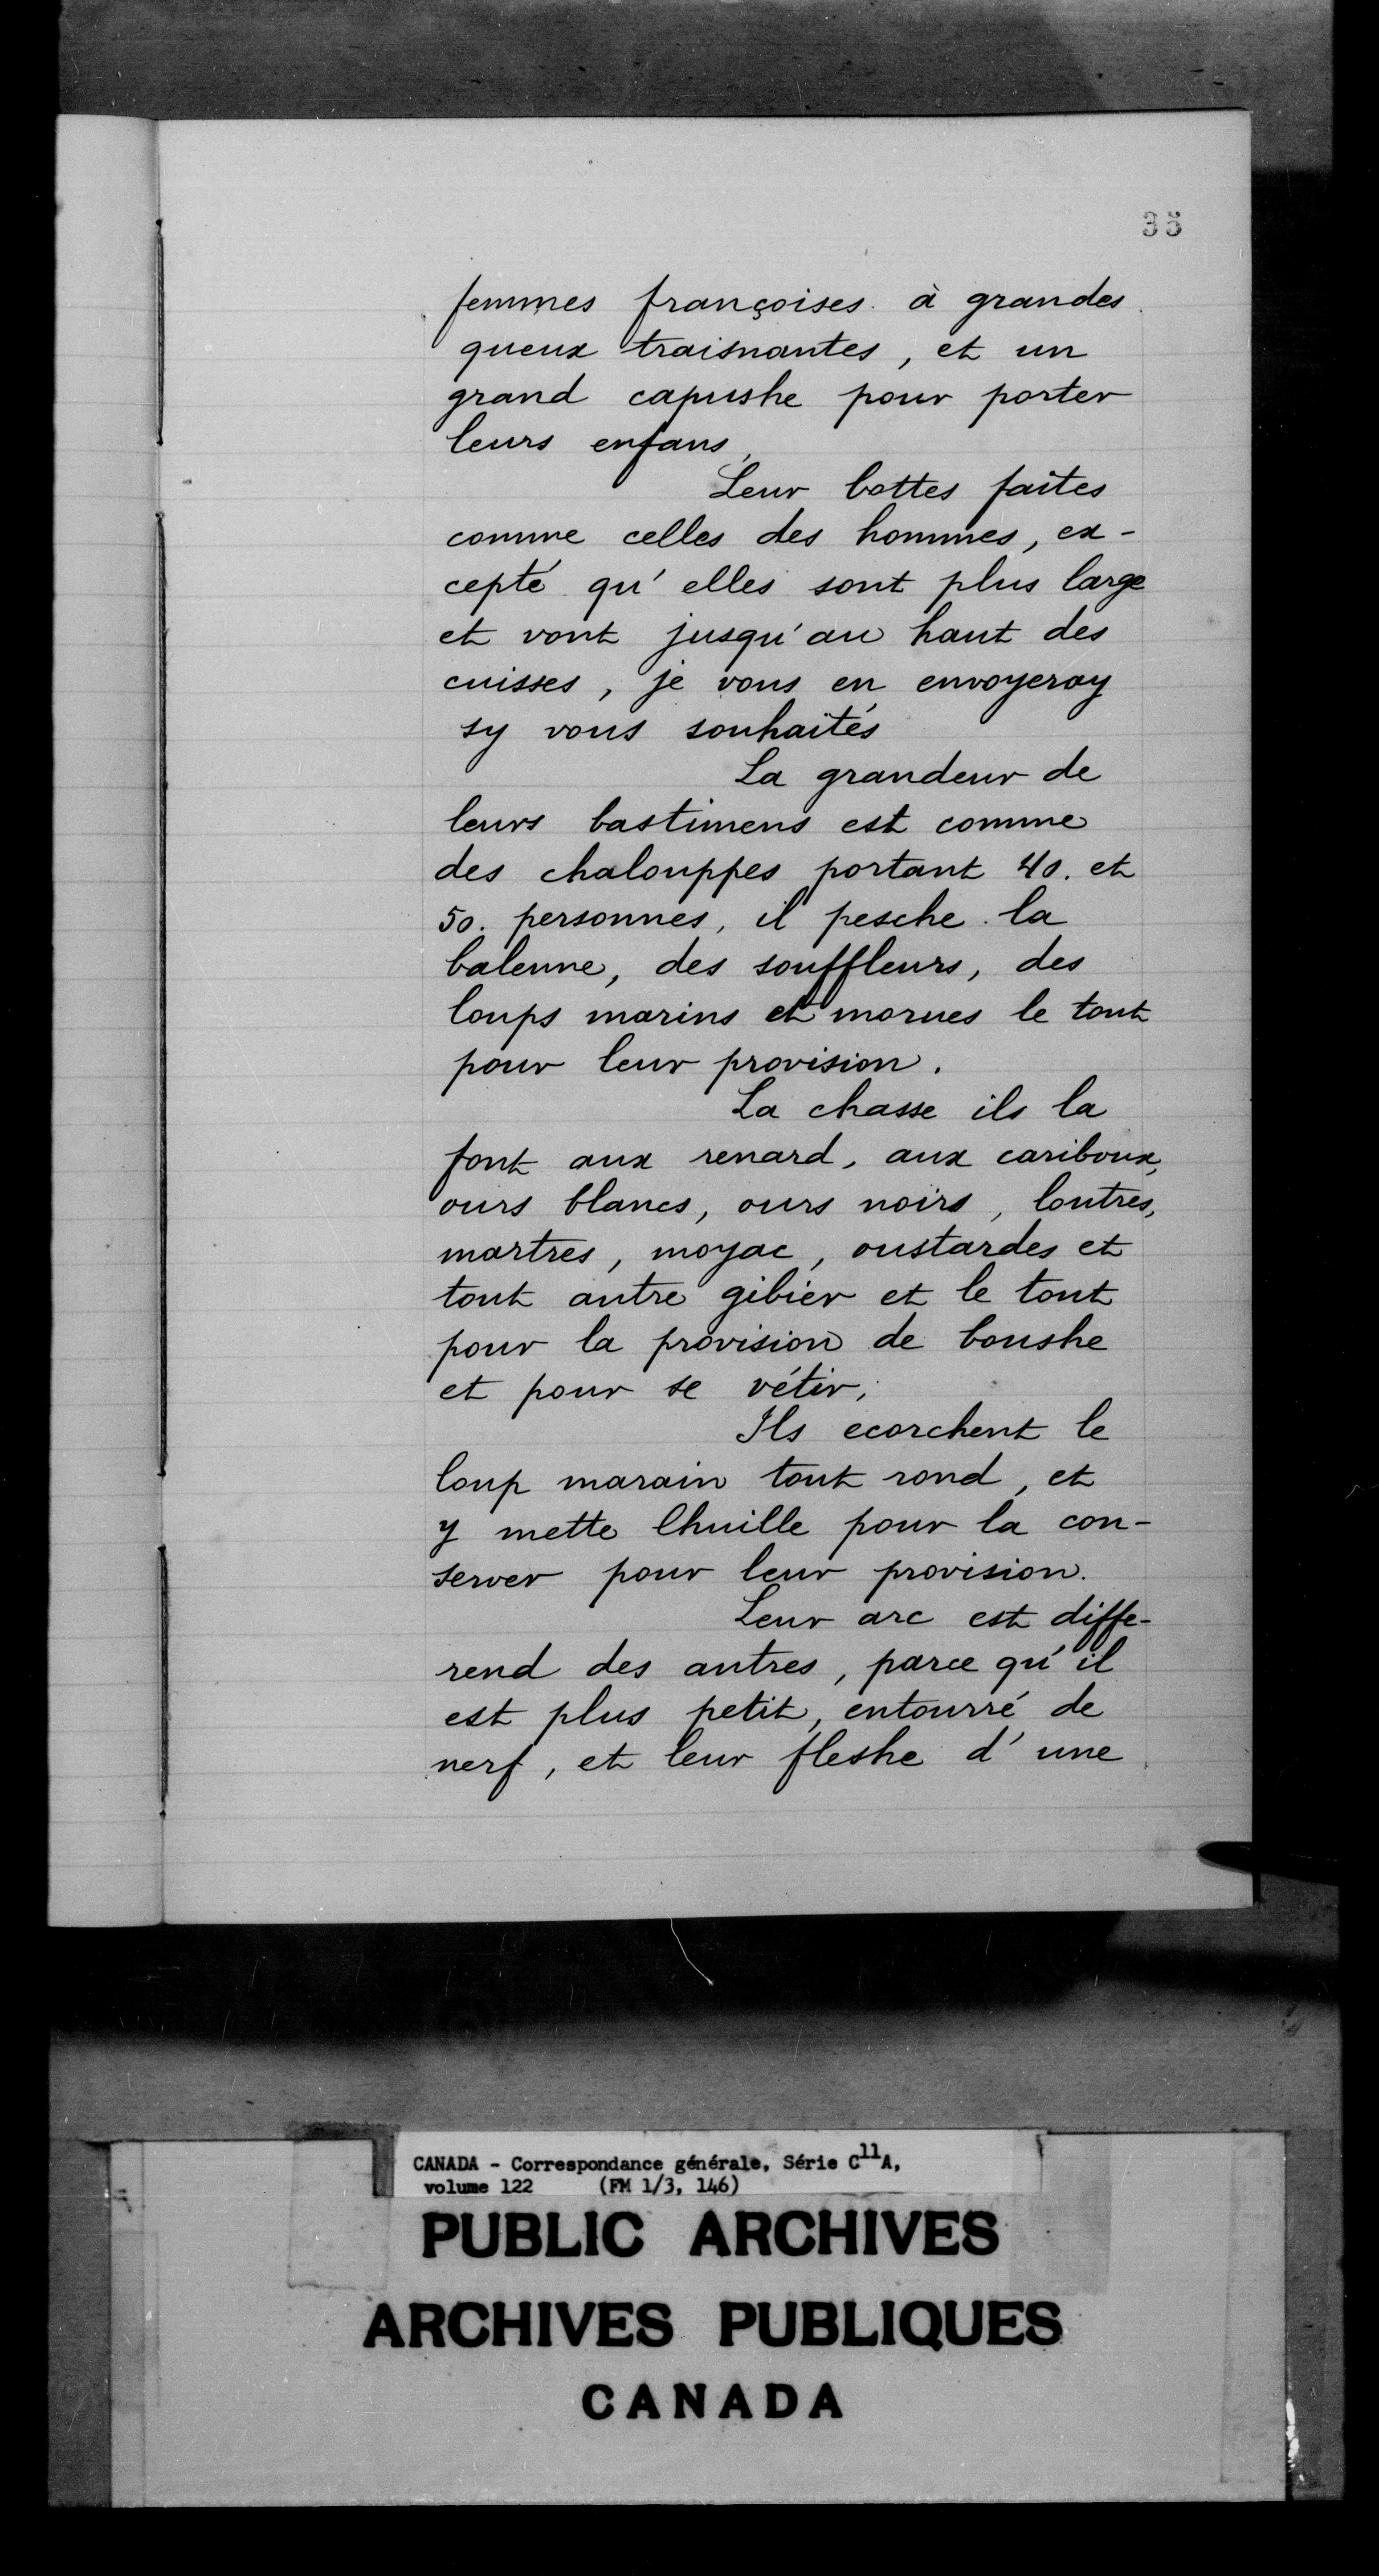 35
femmes françoises à grandes
queux traisnantes, et un
grand capushe pour porter
leurs enfans,
Leur bottes faites
comme celles des hommes, ex-
cepté qu'elles sont plus large
et vont jusqu'au haut des
cuisses, je vous en envoyeray
sy vous souhaités
La grandeur de
leurs bastimens est comme
des chalouppes portant 40. et
50. personnes, il pesche la
balenne, des souffleurs, des
loups marins et morues le tout
pour leur provision.
La chasse ils la
font aux renard, aux cariboux,
ours blancs, ours noirs, loutres,
martres, moyac, oustardes et
tout autre gibier et le tout
pour la provision de boushe
et pour se vétir,
Ils ecorchent le
loup marain tout rond, et
y mette lhuille pour la con-
server pour leur provision.
Leur arc est diffe-
rend des autres, parce qu'il
est plus petit, entourré de
nerf, et leur fleshe d'une
CANADA - Correspondance générale, Série C11A,
volume 122 (FM 1/3, 146)
PUBLIC ARCHIVES
ARCHIVES PUBLIQUES
CANADA